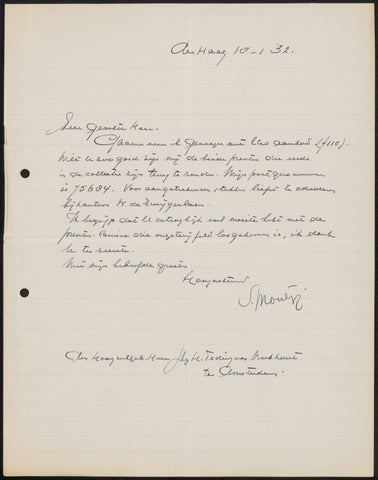 den Haag 10-1 32.
Zeer geachte Heer.
Gaarne neem ik genoegen met Uw aanbod (ƒ110).
Wilt U zoo goed zijn mij de beide prenten die reeds
in de collectie zijn terug te zenden. Mijn postgironummer
is 75684. Voor aangeteekende stukken liefst te adresseeren
bijkantoor H. de
Ik begrijp dat U ontzaglijk veel moeite hebt met de
prenten. die ontzettend veel is; ik dank
U ten zeerste.
Met mijn beleefde groeten
Hoogachtend
S. Moulijn
den Hoogedelgeb. Heer Jhr H. Teding van Berkhout
te Amsterdam.